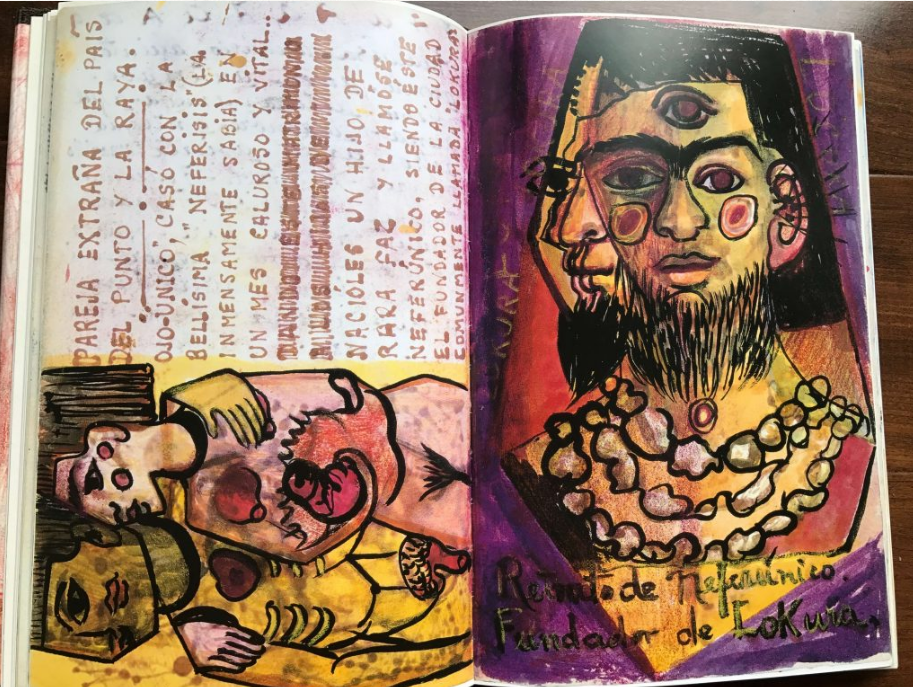 PAREJA EXTRAÑA DEL PAÍS
DEL PUNTO Y LA RAYA.
OJO-UNICO", CASÓ CON LA
BELLÍSIMA "NEFERISIS" (LA
INMENSAMENTE SABIA) EN
UN MES CALUROSO Y VITAL..
NACIÓLES UN HIJO DE
RARA FAZ Y LLAMÓSE
NEFERÚNICO, SIENDO ÉSTE
EL FUNDADOR DE LA CIUDAD
COMUNMENTE LLAMADA "LOKURA"
Retrato de Neferúnico.
Fundador de Lokura.